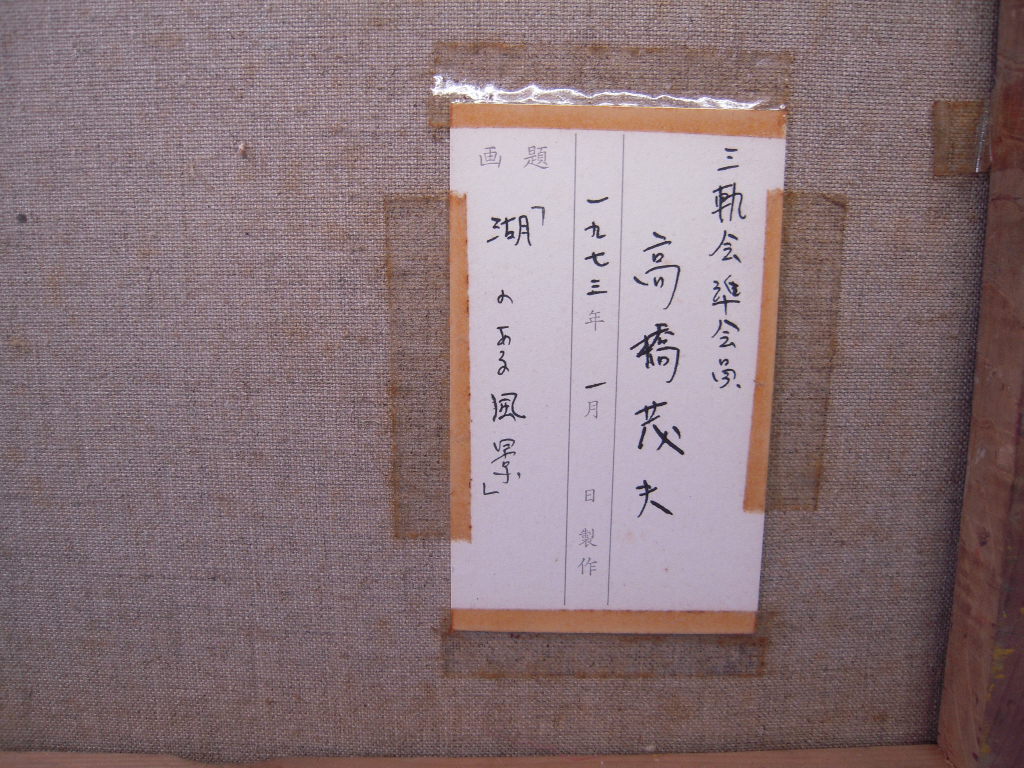 三軌会準会員
高橋茂夫
一九七三年 一月 日製作
画題
「湖のある風景」